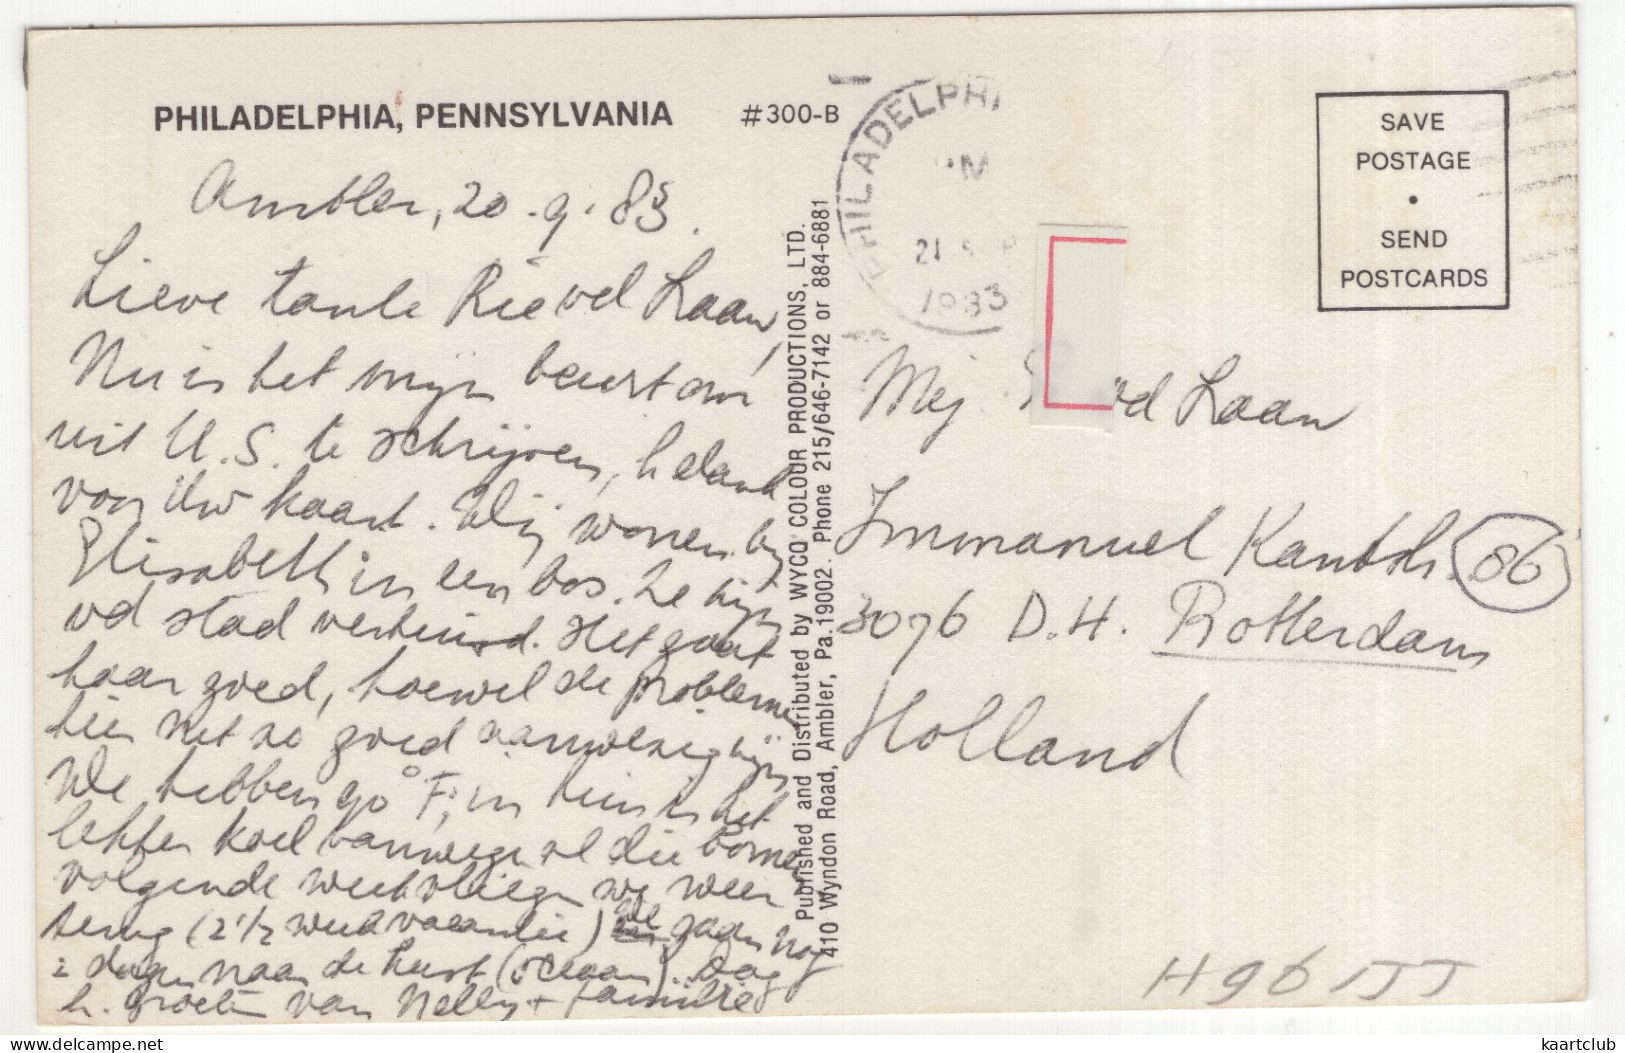 PHILADELPHIA, PENNSYLVANIA #300-B
Ambler, 20.9.83.
Lieve tante Rie vd Laan,
Nu is het mijn beurt om
uit U.S. te schrijven, h. dank
voor Uw kaart. Wij wonen bij
Elisabeth in een bos. Ze zijn
vd stad verhuisd. Het gaat
haar goed, hoewel de problemen
hier net zo goed aanwezig zijn
We hebben 90 °F, in huis is het
lekker koel vanwege al die bomen
volgende week vliegen we weer
terug (2 1/2 week vacantie) we gaan nog
2 dagen naar de kust (oceaan). Dag
h. groeten van Nelly + familie
Published and Distributed by WYCO COLOUR PRODUCTIONS, LTD.
410 Wyndon Road, Ambler, Pa. 19002. Phone 215/646-7142 or 884-6881
PHILADELPHI
21
1983
SAVE
POSTAGE
•
SEND
POSTCARDS
Mej vd Laan
Immanuel Kantstr. 86
3076 D.H. Rotterdam
Holland
H96
delcampe.net
kaartclub